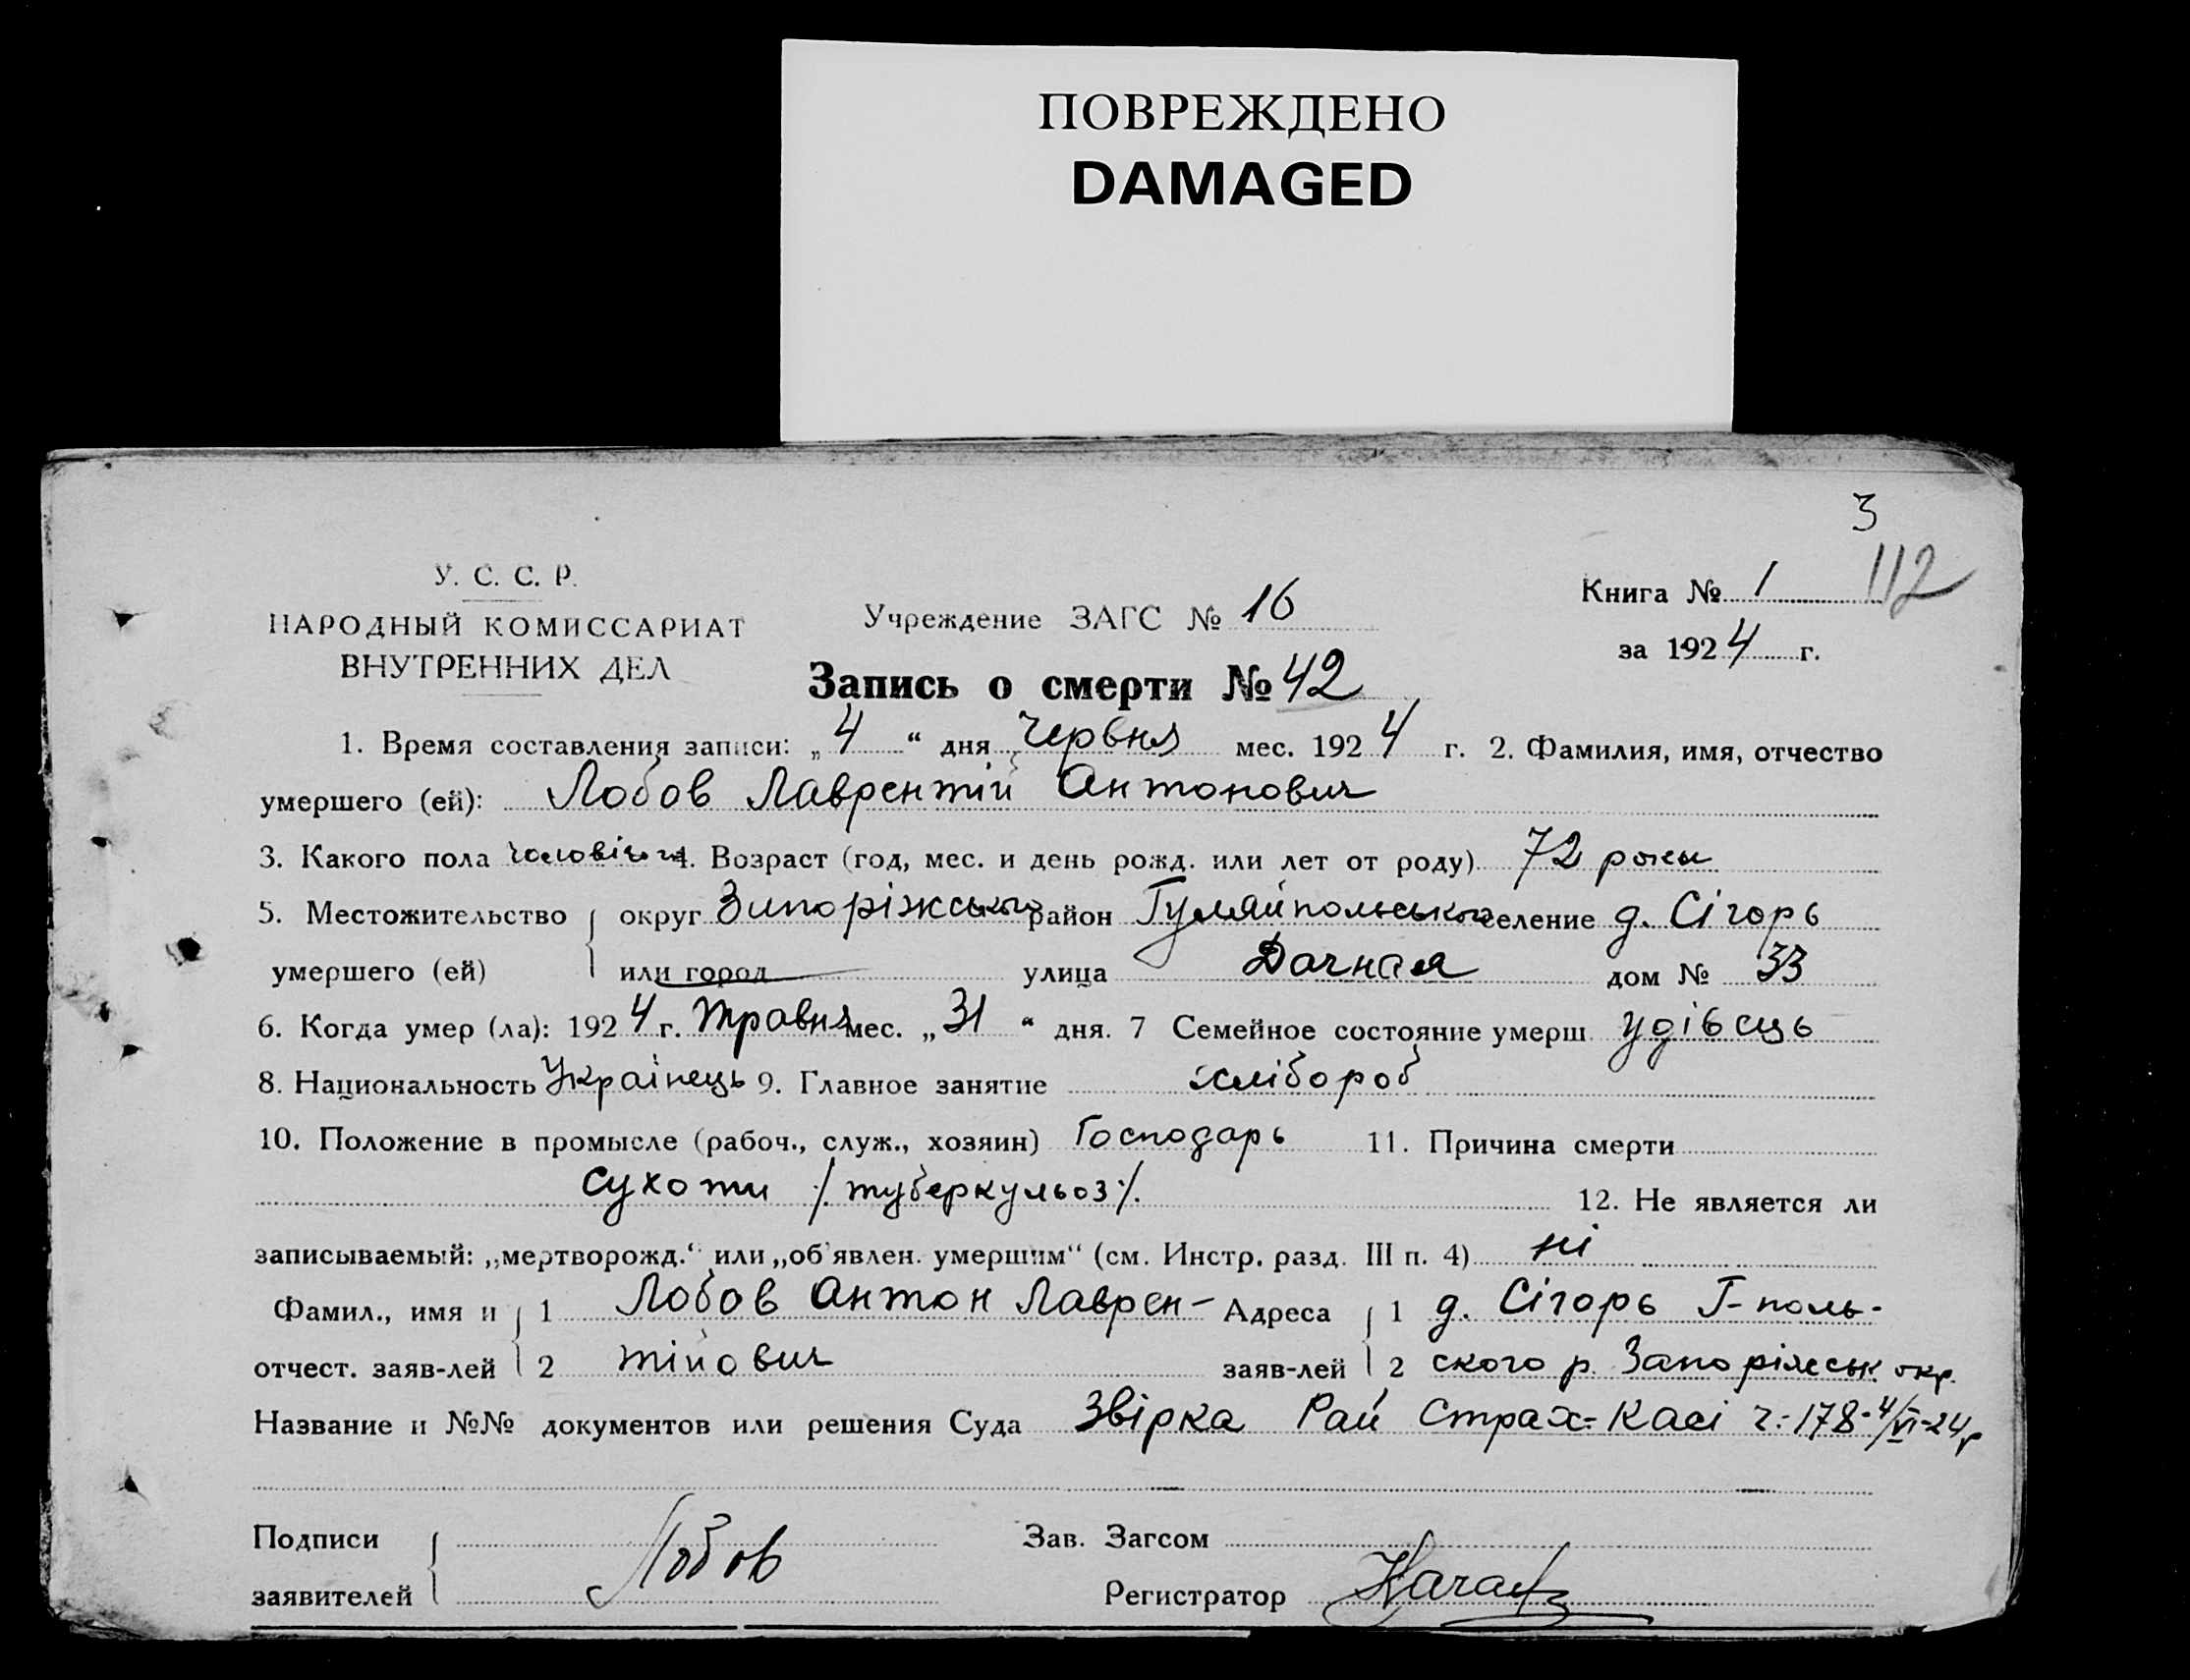 ПОВРЕЖДЕНО
DAMAGED
3
112
У. С. С. Р.
НАРОДНЫЙ КОМИССАРИАТ
ВНУТРЕННИХ ДЕЛ
Учреждение ЗАГС № 16
Книга № 1
за 1924 г.
Запись о смерти № 42
1. Время составления записи: „4“ дня Червня мес. 1924 г. 2. Фамилия, имя, отчество
умершего (ей): Лобов Лаврентій Антонович
3. Какого пола 4. Возраст (год, мес. и день рожд. или лет от роду) 72 роки
5. Местожительство округ Запоріжського район Гуляйпольського селение д. Сігорь
умершего (ей) или город улица Дачная дом № 33
6. Когда умер (ла): 1924 г. Травня мес. „31“ дня. 7 Семейное состояние умерш. удівець
8. Национальность Українець 9. Главное занятие хлібороб
10. Положение в промысле (рабоч., служ., хозяин) Господарь 11. Причина смерти
сухоти /туберкульоз/. 12. Не является ли
записываемый: „мертворожд.“ или „об'явлен. умершим“ (см. Инстр. разд. III п. 4) ні
Фамил., имя и 1 Лобов Антон Лаврен- Адреса 1 д. Сігорь Г-поль-
отчест. заяв-лей 2 тійович заяв-лей 2 ского р. Запоріжськ. окр.
Название и №№ документов или решения Суда Звірка Рай Страх-Касі ч:-178-4/VI-24р
Подписи Лобов Зав. Загсом
заявителей Регистратор